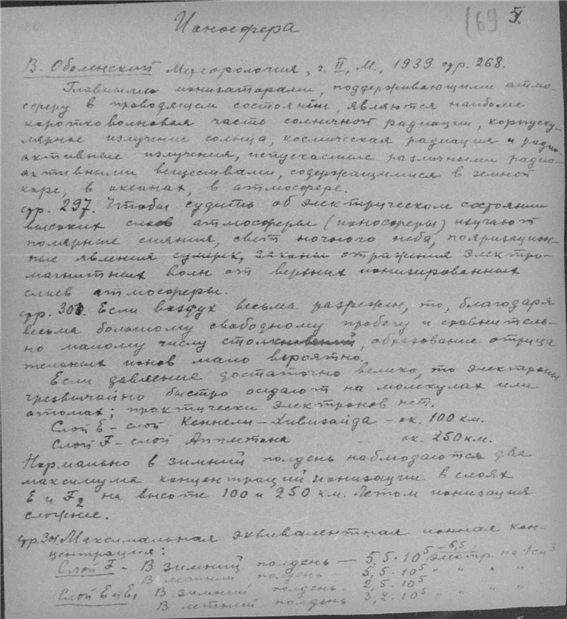 (69 5.
Ионосфера
В. Оболенский Метеорология, ч. II, М., 1939 стр. 268.
Главными ионизаторами, поддерживающими атмо-
сферу в проводящем состоянии, являются наиболее
коротковолновая часть солнечной радиации, корпуску-
лярное излучение солнца, космическая радиация и радио-
активные излучения, испускаемые различными радио-
активными веществами, содержащимися в земной
коре, в океанах, в атмосфере.
стр. 297. Чтобы судить об электрическом состоянии
высоких слоев атмосферы (ионосферы) изучают
полярные сияния, свет ночного неба, поляризацион-
ные явления сумерек, законы отражения электро-
магнитных волн от верхних ионизированных
слоев атмосферы.
стр. 300. Если воздух весьма разрежен, то, благодаря
весьма большому свободному пробегу и сравнитель-
но малому числу столкновений, образование отрица
тельных ионов мало вероятно.
Если давление достаточно велико, то электроны
чрезвычайно быстро оседают на молекулах или
атомах; практически электронов нет.
Слой E – слой Кеннели-Хивизайда – ок. 100 км.
Слой F – слой Аппльтона – ок. 250 км.
Нормально в зимний полдень наблюдаются два
максимума концентраций ионизации в слоях
E и F₂ на высоте 100 и 250 км. Летом ионизация
сложнее.
Максимальная эквивалентная ионная кон-
центрация:
Слой F – В зимний полдень — 5,5·10⁵ – 6,5 электр. на 1 см³
В летний полдень – 5,5·10⁵ " " "
Слой E В зимний полдень – 2,5·10⁵ " " "
В летний полдень 3,2·10⁵ " " "